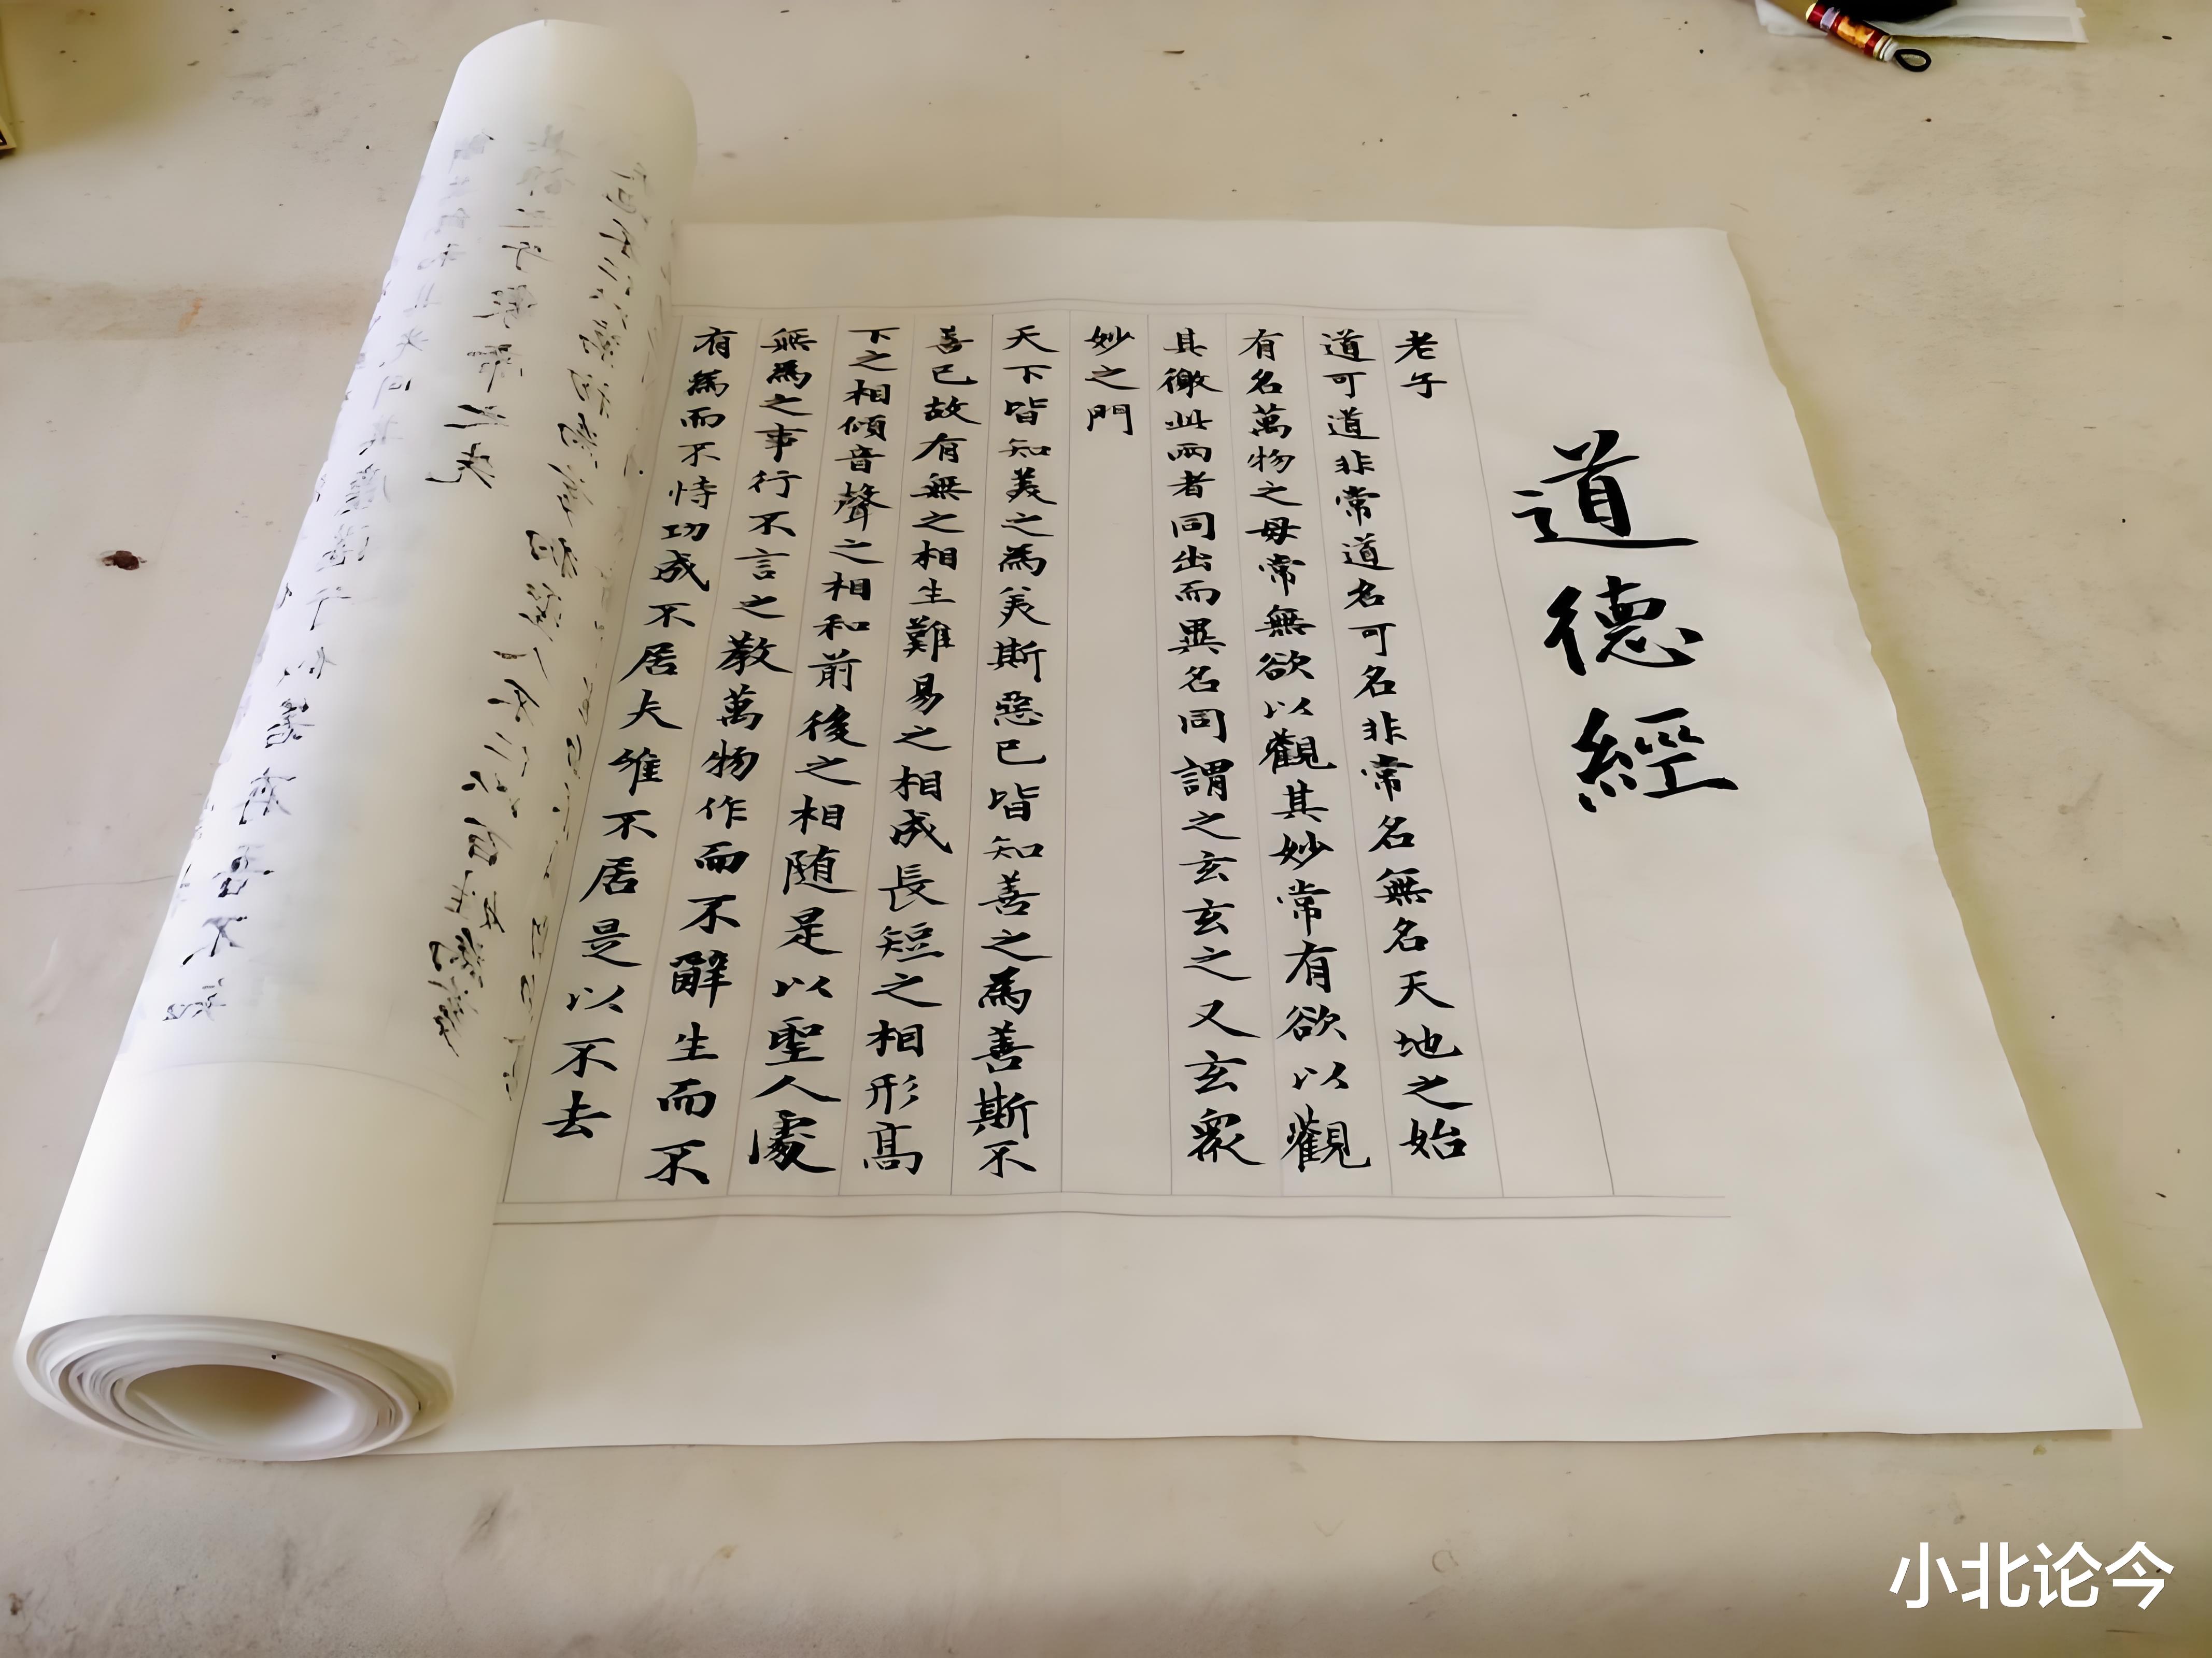 道德經
老子
道可道非常道名可名非常名無名天地之始
有名萬物之母常無欲以觀其妙常有欲以觀
其徼此兩者同出而異名同謂之玄玄之又玄衆
妙之門
天下皆知美之為美斯惡已皆知善之為善斯不
善已故有無之相生難易之相成長短之相形高
下之相傾音聲之相和前後之相随是以聖人處
無為之事行不言之教萬物作而不辭生而不
有為而不恃功成不居夫唯不居是以不去
小北论今